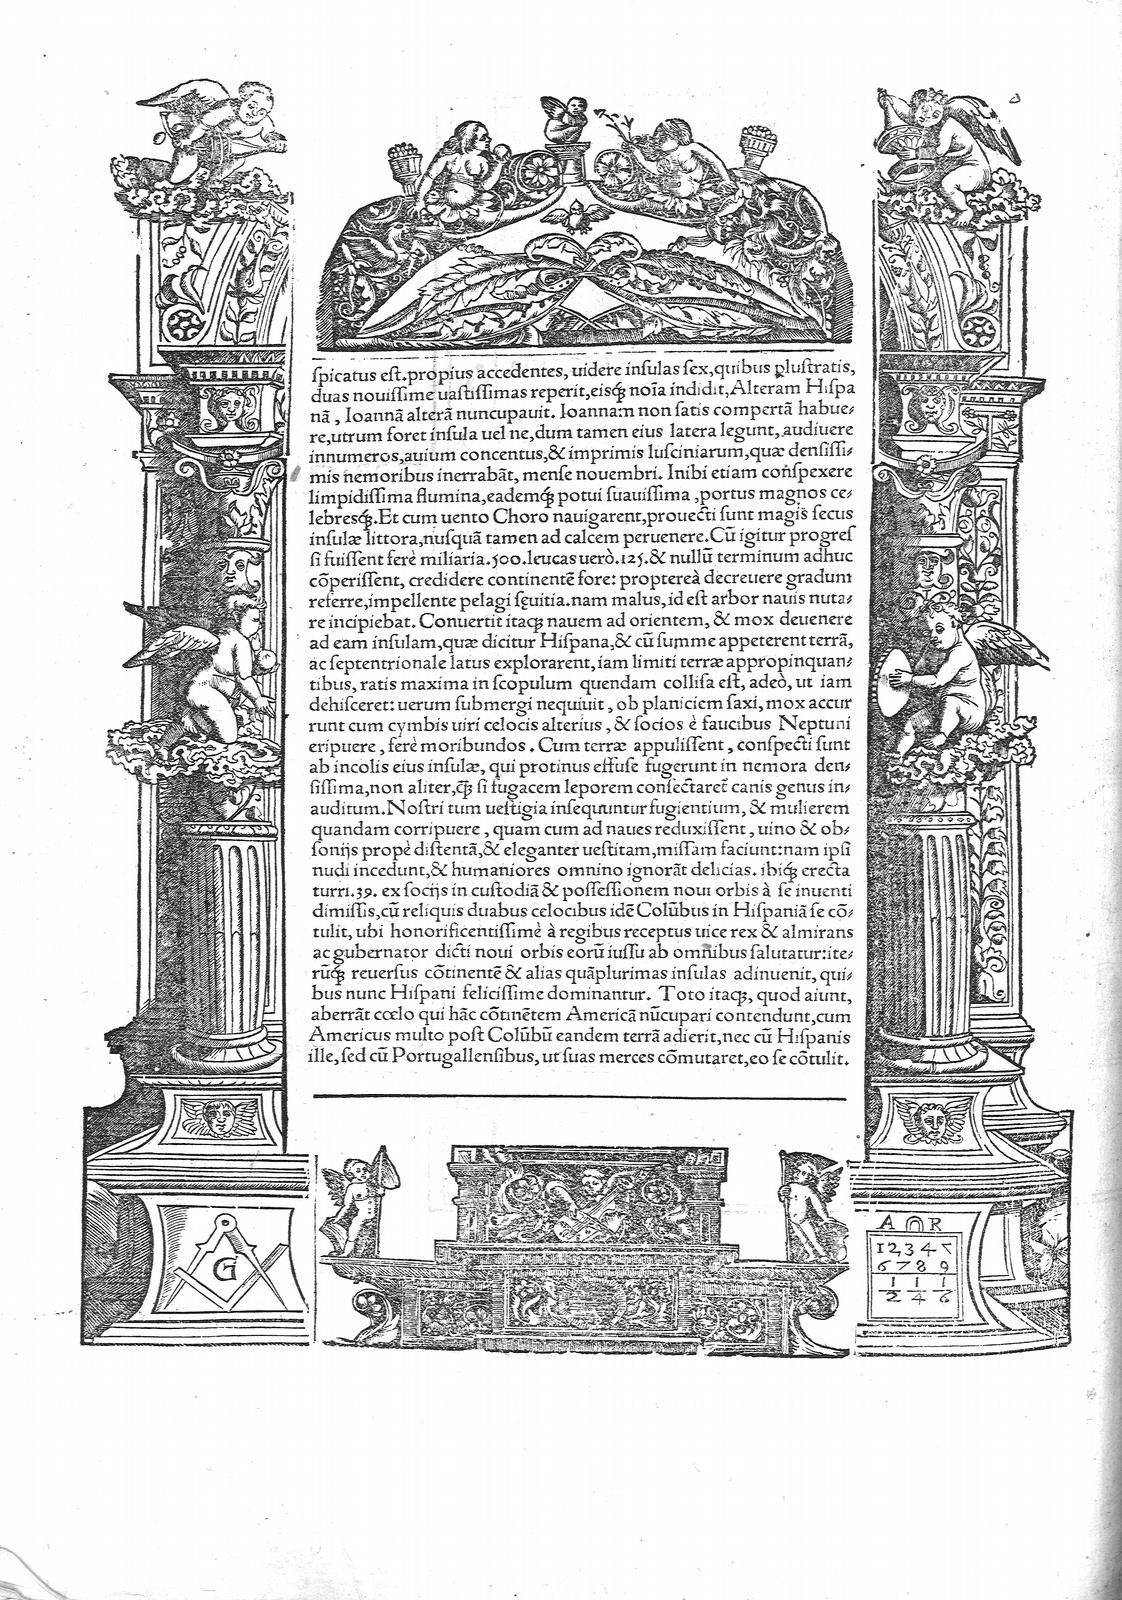 ſpicatus eſt.propius accedentes, uidere inſulas ſex,quibus ꝑluſtratis,
duas nouiſſime uaſtiſſimas reperit,eisq́ꝫ noĩa indidit,Alteram Hiſpa
nã, Ioannã alterã nuncupauit. Ioannam non ſatis compertã habue⸗
re,utrum foret inſula uel ne,dum tamen eius latera legunt,audiuere
innumeros,auium concentus,& imprimis luſciniarum,quæ denſiſſi⸗
mis nemoribus inerrabãt, menſe nouembri. Inibi etiam conſpexere
limpidiſſima flumina,eademq́ꝫ potui ſuauiſſima ,portus magnos ce⸗
lebresq́ꝫ.Et cum uento Choro nauigarent,prouecti ſunt magis ſecus
inſulæ littora,nuſquã tamen ad calcem peruenere.Cũ igitur progreſ
ſi fuiſſent ferè miliaria.500.leucas uerò.125.& nullũ terminum adhuc
cõperiſſent, credidere continentẽ fore: proptereà decreuere gradum
referre,impellente pelagi ſęuitia.nam malus,id eſt arbor nauis nuta⸗
re incipiebat. Conuertit itaqꝫ nauem ad orientem, & mox deuenere
ad eam inſulam,quæ dicitur Hiſpana,& cũ ſumme appeterent terrã,
ac ſeptentrionale latus explorarent,iam limiti terræ appropinquan⸗
tibus, ratis maxima in ſcopulum quendam colliſa eſt, adeò, ut iam
dehiſceret: uerum ſubmergi nequiuit, ob planiciem ſaxi, mox accur
runt cum cymbis uiri celocis alterius, & ſocios è faucibus Neptuni
eripuere, ferè moribundos. Cum terræ appuliſſent, conſpecti ſunt
ab incolis eius inſulæ, qui protinus effuſe fugerunt in nemora den⸗
ſiſſima,non aliter,q̃ꝫ ſi fugacem leporem conſectaret̃ canis genus in⸗
auditum.Noſtri tum ueſtigia inſequuntur fugientium, & mulierem
quandam corripuere, quam cum ad naues reduxiſſent, uino & ob⸗
ſonijs propè diſtentã,& eleganter ueſtitam,miſſam faciunt:nam ipſi
nudi incedunt,& humaniores omnino ignorãt delicias. ibiq́ꝫ erecta
turri.39. ex ſocijs in cuſtodiã & poſſeſſionem noui orbis à ſe inuenti
dimiſſis,cũ reliquis duabus celocibus idẽ Colũbus in Hiſpaniã ſe cõ⸗
tulit, ubi honorificentiſſimè à regibus receptus uice rex & almirans
ac gubernator dicti noui orbis eorũ iuſſu ab omnibus ſalutatur:ite⸗
rũq́ꝫ reuerſus cõtinentẽ & alias quãplurimas inſulas adinuenit, qui⸗
bus nunc Hiſpani feliciſſime dominantur. Toto itaqꝫ, quod aiunt,
aberrãt cœlo qui hãc cõtinẽtem Americã nũcupari contendunt,cum
Americus multo poſt Colũbũ eandem terrã adierit,nec cũ Hiſpanis
ille,ſed cũ Portugallenſibus, ut ſuas merces cõmutaret,eo ſe cõtulit.
G
A R
1 2 3 4 5
6 7 8 9
1/2 1/4 1/6